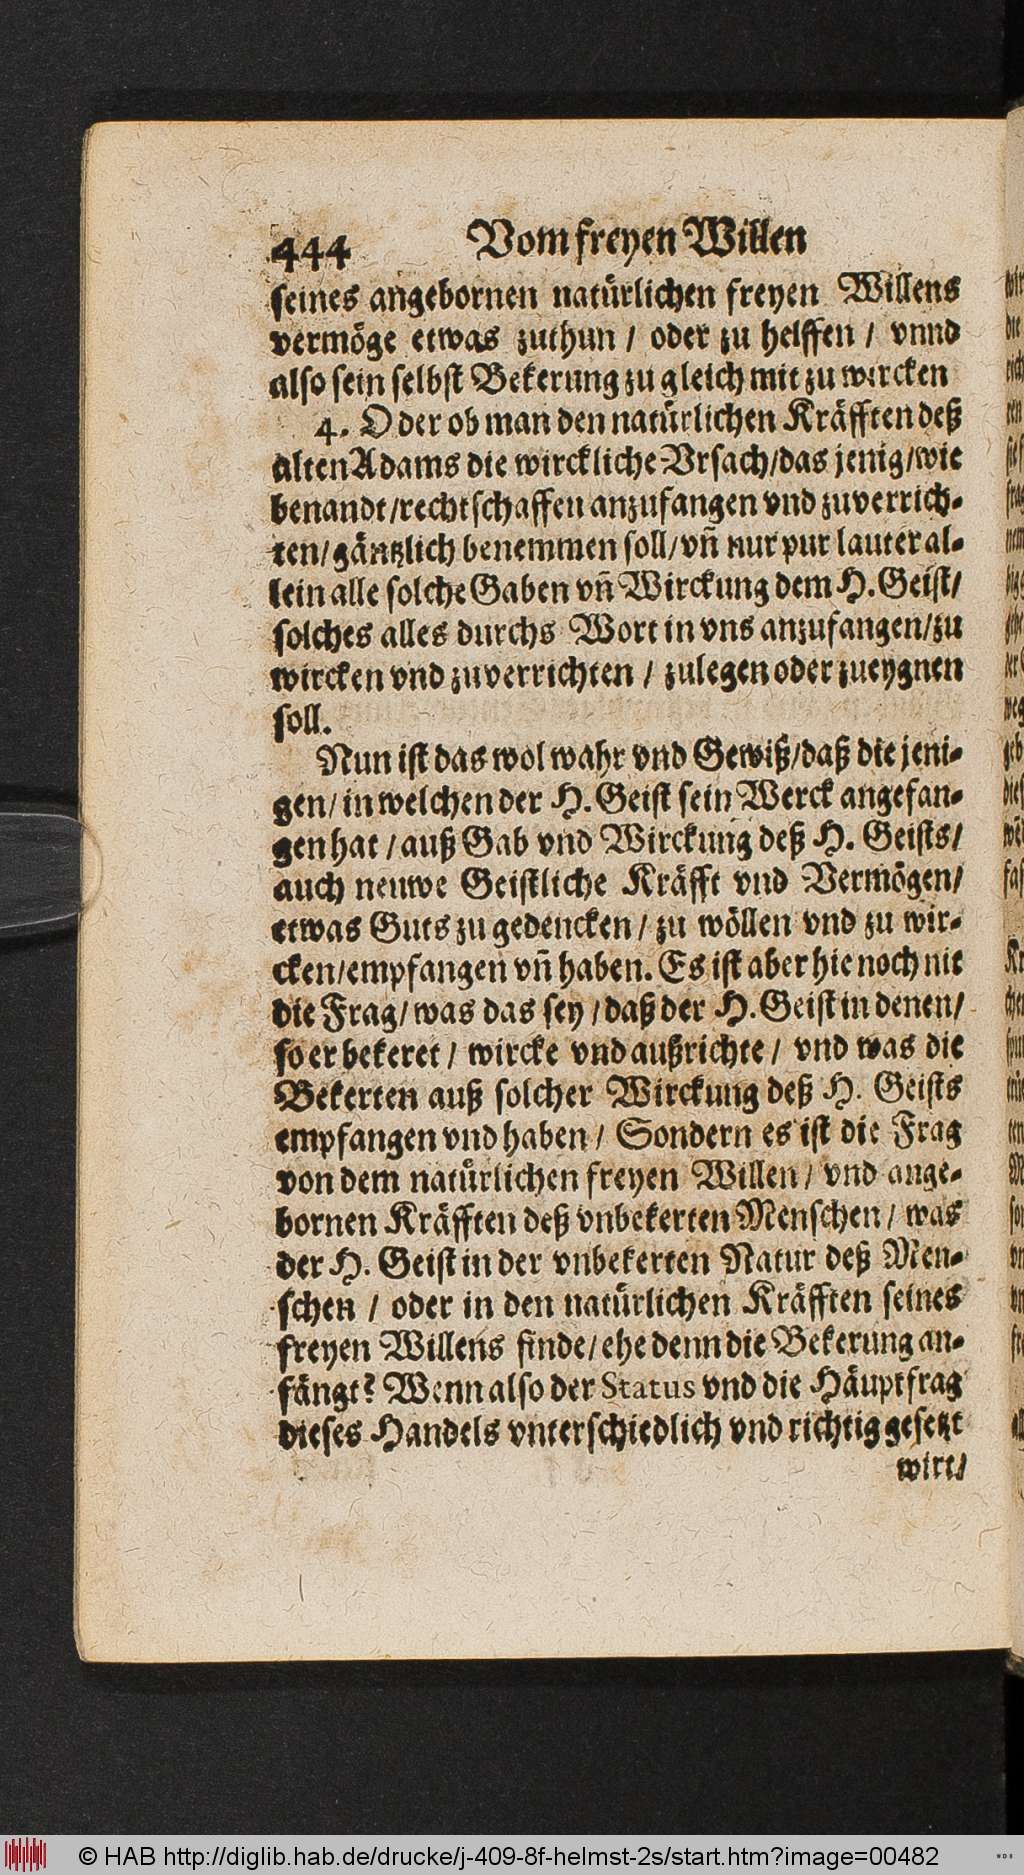 444 Vom freyen Willen
seines angebornen natürlichen freyen Willens
vermöge etwas zuthun / oder zu helffen / vnnd
also sein selbst Bekerung zu gleich mit zu wircken
4. Oder ob man den natürlichen Kräfften deß
alten Adams die wirckliche Vrsach/das jenig/wie
benandt/rechtschaffen anzufangen vnd zuverrich-
ten/gäntzlich benemmen soll/vñ nur pur lauter al-
lein alle solche Gaben vñ Wirckung dem H. Geist/
solches alles durchs Wort in vns anzufangen/zu
wircken vnd zuverrichten / zulegen oder zueygnen
soll.
Nun ist das wol wahr vnd Gewiß/daß die jeni-
gen/in welchen der H. Geist sein Werck angefan-
gen hat / auß Gab vnd Wirckung deß H. Geists/
auch neuwe Geistliche Kräfft vnd Vermögen/
etwas Guts zu gedencken / zu wöllen vnd zu wir-
cken/empfangen vñ haben. Es ist aber hie noch nit
die Frag/was das sey/daß der H. Geist in denen/
so er bekeret / wircke vnd außrichte / vnd was die
Bekerten auß solcher Wirckung deß H. Geists
empfangen vnd haben / Sondern es ist die Frag
von dem natürlichen freyen Willen / vnd ange-
bornen Kräfften deß vnbekerten Menschen / was
der H. Geist in der vnbekerten Natur deß Men-
schen / oder in den natürlichen Kräfften seines
freyen Willens finde/ehe denn die Bekerung an-
fängt? Wenn also der Status vnd die Häuptfrag
dieses Handels vnterschiedlich vnd richtig gesetzt
wirt/
© HAB http://diglib.hab.de/drucke/j-409-8f-helmst-2s/start.htm?image=00482